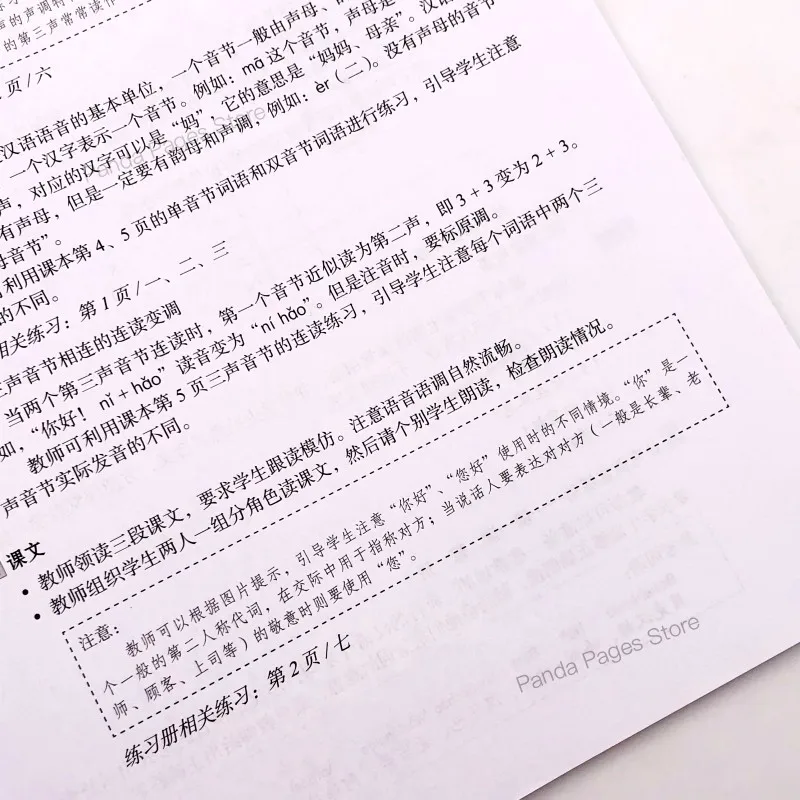 声的声调特
的第三声常常读作
页/六
汉语语音的基本单位，一个音节一般由声母、
一个汉字表示一个音节。例如：mā这个音节，声母是
声，对应的汉字可以是“妈”，它的意思是“妈妈、母亲”。汉语
有声母，但是一定要有韵母和声调，例如：èr（二）。没有声母的音节
母音节”。
可利用课本第4、5页的单音节词语和双音节词语进行练习，引导学生注意
的不同。
相关练习：第1页/一、二、三
三声音节相连的连读变调
当两个第三声音节连读时，第一个音节近似读为第二声，即3+3变为2+3。
如，“你好！nǐ+hǎo”读音变为“ní hǎo”。但是注音时，要标原调。
教师可利用课本第5页三声音节的连读练习，引导学生注意每个词语中两个三
声音节实际发音的不同。
课文
• 教师领读三段课文，要求学生跟读模仿。注意语音语调自然流畅。
• 教师组织学生两人一组分角色读课文，然后请个别学生朗读，检查朗读情况。
注意：
教师可以根据图片提示，引导学生注意“你好”、“您好”使用时的不同情境。“你”是一
个一般的第二人称代词，在交际中用于指称对方；当说话人要表达对对方（一般是长辈、老
师、顾客、上司等）的敬意时则要使用“您”。
练习册相关练习：第2页/七
Panda Pages Store
Panda Pages Store